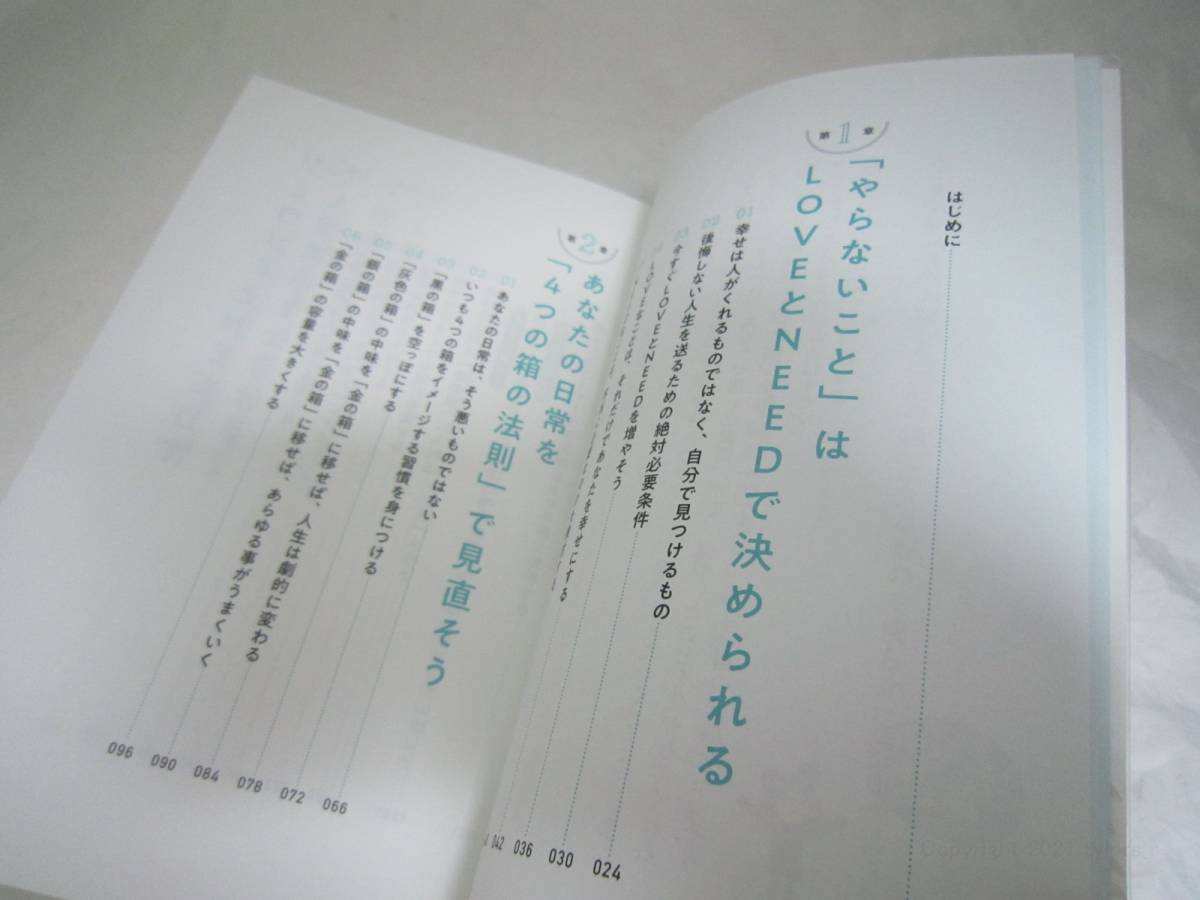 はじめに
第1章
「やらないこと」は
LOVEとNEEDで決められる
01 幸せは人がくれるものではなく、自分で見つけるもの 024
02 後悔しない人生を送るための絶対必要条件 030
03 今すぐLOVEとNEEDを増やそう 036
LOVEなことは、それだけであなたを幸せにする 042
第2章
あなたの日常を
「4つの箱の法則」で見直そう
01 あなたの日常は、そう悪いものではない 066
02 いつも4つの箱をイメージする習慣を身につける 072
03 「黒の箱」を空っぽにする 078
04 「灰色の箱」の中味を「金の箱」に移せば、人生は劇的に変わる 084
05 「銀の箱」の中味を「金の箱」に移せば、あらゆる事がうまくいく 090
06 「金の箱」の容量を大きくする 096